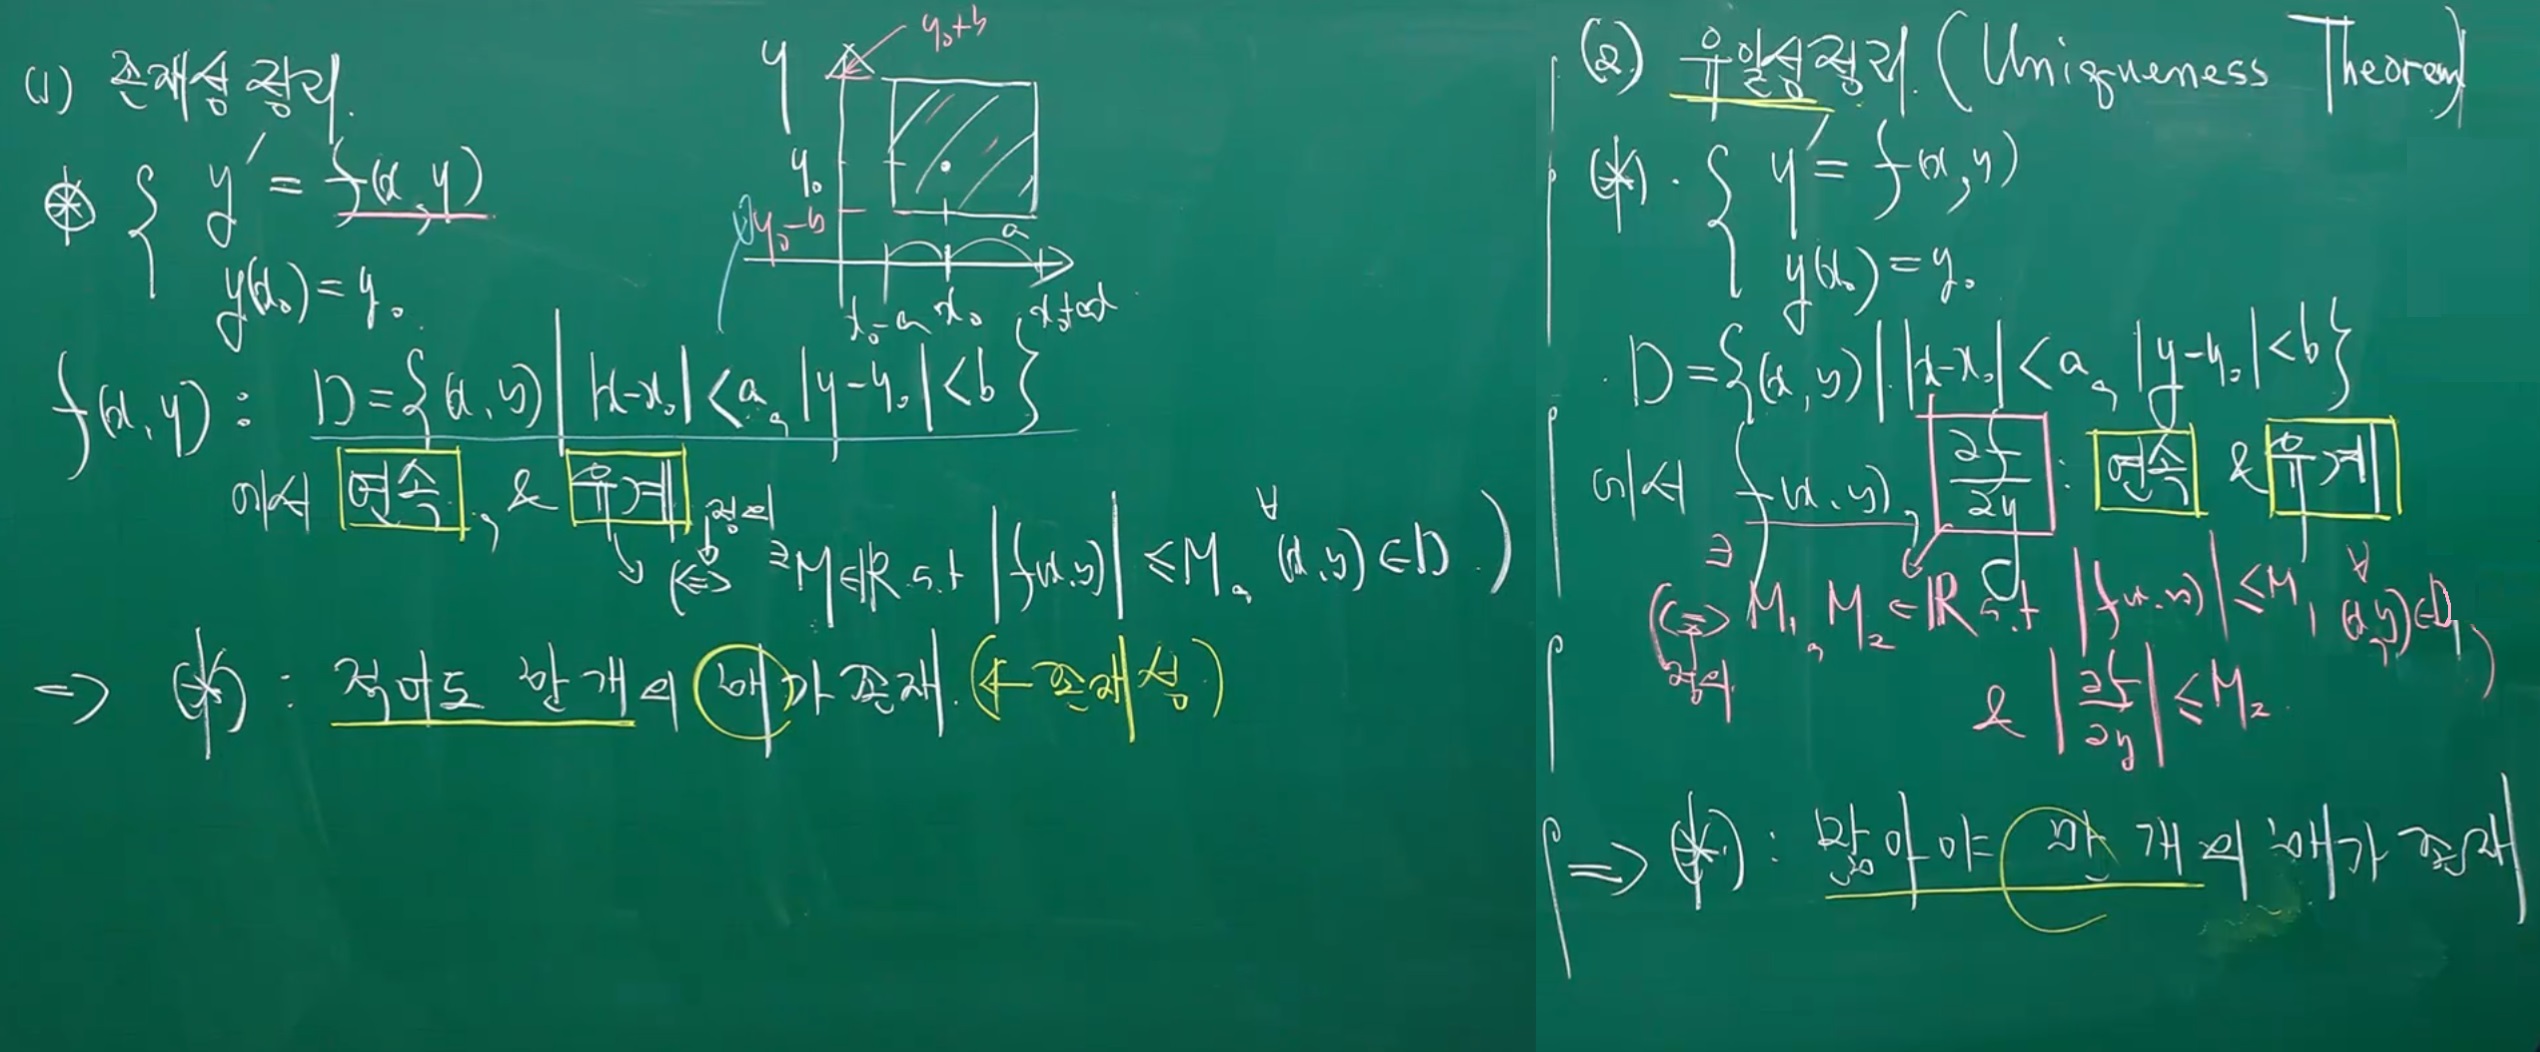 (1) 존재성 정리.
⊛ { y' = f(x, y)
y(x₀) = y₀.
y
y₀+b
y₀
y₀-b
a
x₀-a x₀ x₀+a x
f(x, y) : D = {(x, y) | |x-x₀| < a, |y-y₀| < b}
에서 연속, & 유계
정의
(⇔ ∃M∈ℝ s.t |f(x, y)| ≤ M, ∀(x, y) ∈ D.)
⇒ (*) : 적어도 한 개의 해가 존재. (← 존재성)
(2) 유일성 정리. (Uniqueness Theorem)
(*). { y' = f(x, y)
y(x₀) = y₀
D = {(x, y) | |x-x₀| < a, |y-y₀| < b}
에서 f(x, y), ∂f/∂y : 연속 & 유계
(⇔ ∃M₁, M₂ ∈ ℝ s.t |f(x, y)| ≤ M₁, ∀(x, y) ∈ D,
정의.
& |∂f/∂y| ≤ M₂.)
⇒ (*) : 많아야 한 개의 해가 존재